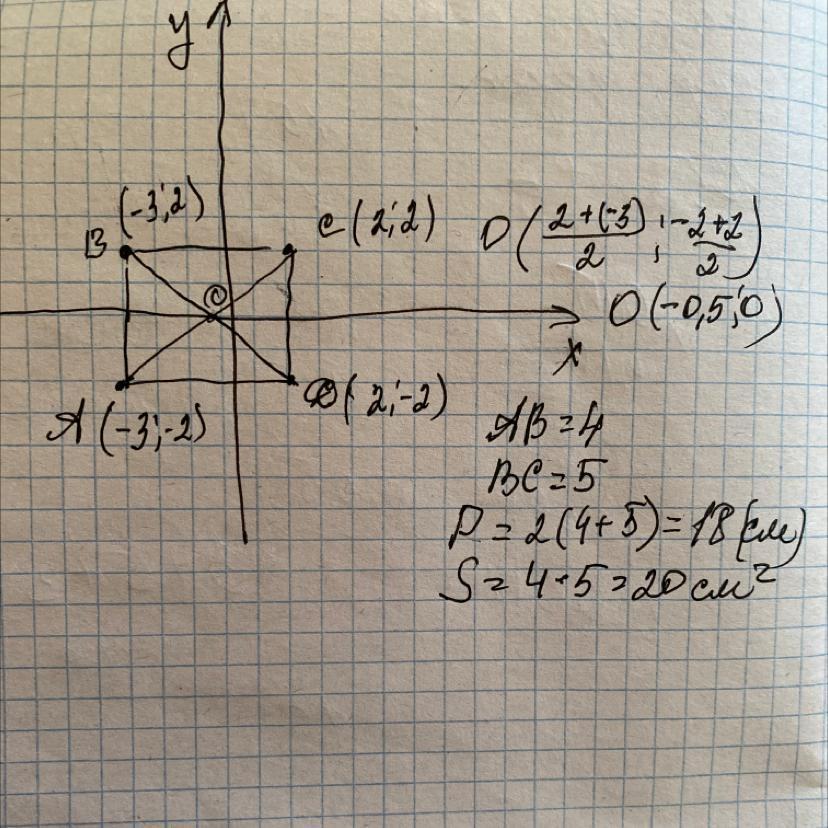 y
(-3;2)
B
C (2;2)
O (2+(-3)/2 ; -2+2/2)
O
O (-0,5;0)
x
A (-3;-2)
D (2;-2)
AB = 4
BC = 5
P = 2(4+5) = 18 (см)
S = 4·5 = 20 см²